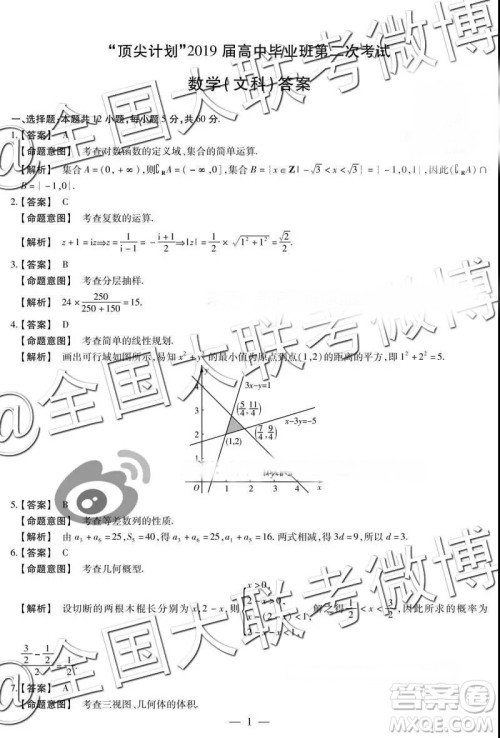 “顶尖计划”2019 届高中毕业班第二次考试
数学(文科)答案
一、选择题:本题共12小题,每小题5分,共60分.
1.【答案】 A
【命题意图】 考查对数函数的定义域、集合的简单运算.
【解析】 集合 A=(0,+∞),则∁RA=(-∞,0],集合 B={x∈Z|-√3<x<√3}={-1,0,1},故(∁RA)∩
B={-1,0}.
2.【答案】 C
【命题意图】 考查复数的运算.
【解析】 z+1=iz⇒z=1/(i-1)=-(i+1)/2⇒|z|=1/2×√(1²+1²)=√2/2.
3.【答案】 B
【命题意图】 考查分层抽样.
【解析】 24×250/(250+150)=15.
4.【答案】 D
【命题意图】 考查简单的线性规划.
【解析】 画出可行域如图所示,易知 x²+y² 的最小值为原点到点(1,2)的距离的平方,即 1²+2²=5.
y
4
3
2
1
O
1 2 3 4 x
3x-y=1
(5/4,11/4)
x-3y=-5
(7/4,9/4)
(1,2)
5.【答案】 B
【命题意图】 考查等差数列的性质.
【解析】 由 a₂+a₆=25,S₅=40,得 a₃+a₅=25,a₁+a₅=16.两式作差,得 3d=9,所以 d=3.
6.【答案】 C
【命题意图】 考查几何概型.
【解析】 设切断的两根木棍长分别为 x,2-x,则{x>0, 2-x>0, x-(2-x)<1, (2-x)-x<1, 解之得 1/2<x<3/2,因此所求的概率为
(3/2-1/2)/2=1/2.
7.【答案】 A
【命题意图】 考查三视图、几何体的体积.
— 1 —
@全国大联考微博
@全国大联考微博
@全国大联考微博
答案圈